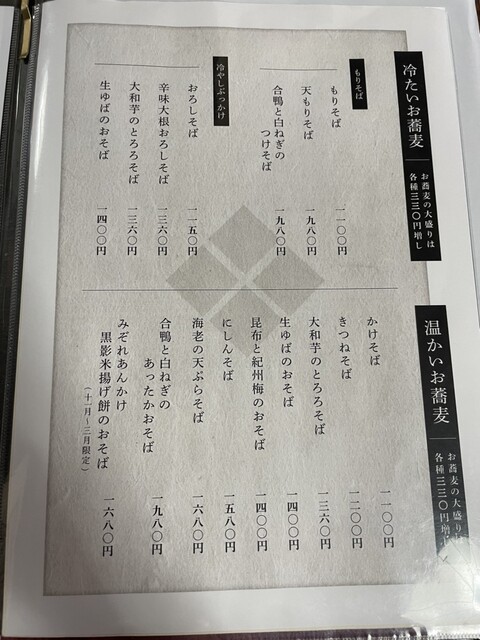 冷たいお蕎麦
お蕎麦の大盛りは
各種三三〇円増し
もりそば
もりそば 一一〇〇円
天もりそば 一九八〇円
合鴨と白ねぎの
つけそば 一九八〇円
冷やしぶっかけ
おろしそば 一一五〇円
辛味大根おろしそば 一三六〇円
大和芋のとろろそば 一三六〇円
生ゆばのおそば 一四〇〇円
温かいお蕎麦
お蕎麦の大盛りは
各種三三〇円増し
かけそば 一一〇〇円
きつねそば 一二〇〇円
大和芋のとろろそば 一三六〇円
生ゆばのおそば 一四〇〇円
昆布と紀州梅のおそば 一四〇〇円
にしんそば 一五八〇円
海老の天ぷらそば 一六八〇円
合鴨と白ねぎの
あったかおそば 一九八〇円
みぞれあんかけ
黒影米揚げ餅のおそば 一六八〇円
(十一月〜三月限定)